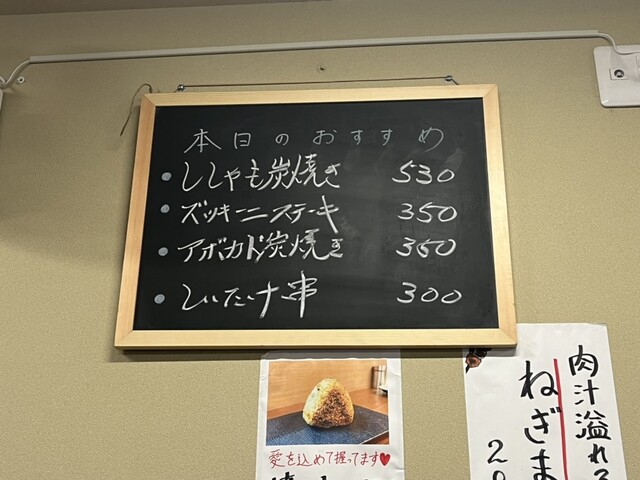 本日のおすすめ
・ししゃも炭焼き 530
・ズッキーニステーキ 350
・アボカド炭焼き 350
・しいたけ串 300
愛を込めて握ってます♥
肉汁溢れる
ねぎま